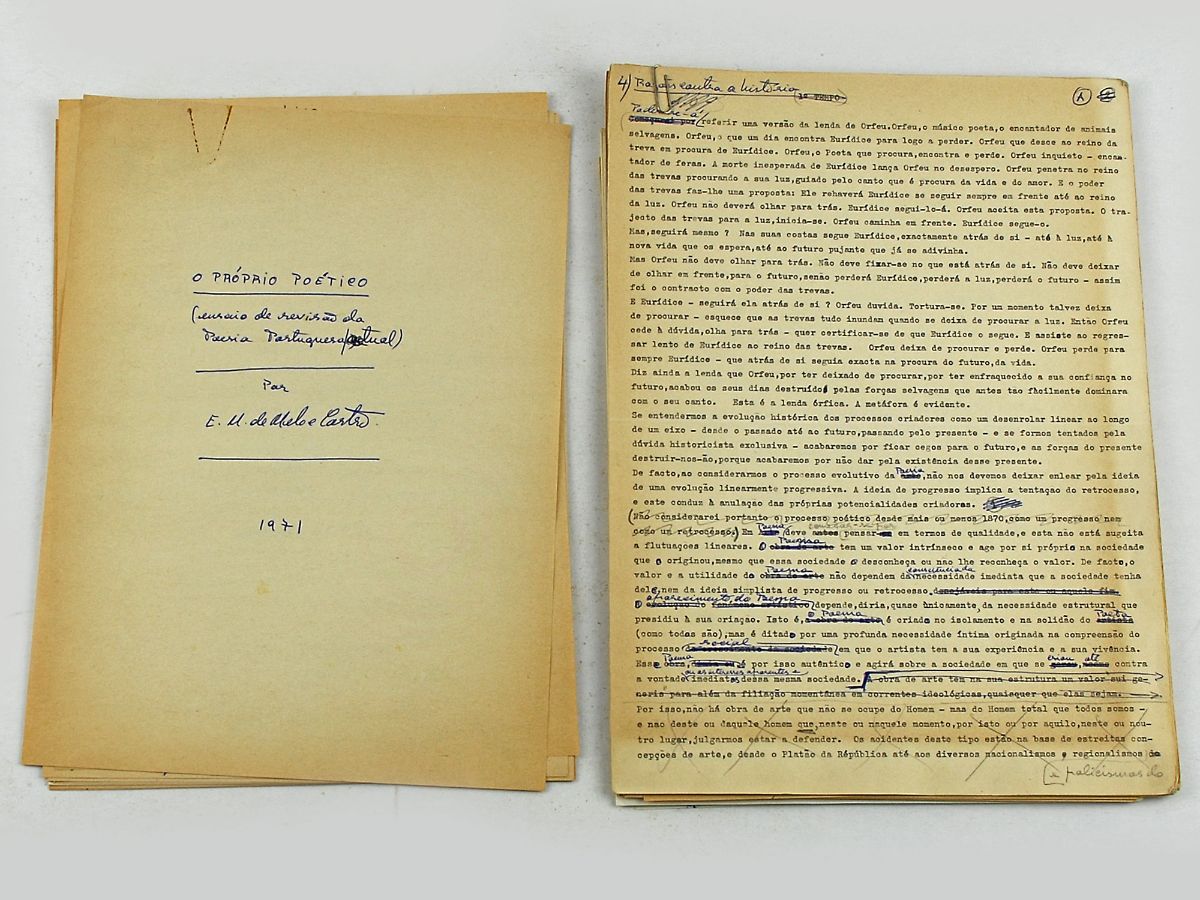 O PRÓPRIO POÉTICO
(ensaio de revisão da
Poesia Portuguesa actual)
Por
E. M. de Melo e Castro.
1971
4) Razões contra a história 1º TEMPO
A
Poderá-
referir uma versão da lenda de Orfeu.Orfeu,o músico poeta,o encantador de animais
selvagens. Orfeu,o que um dia encontra Eurídice para logo a perder. Orfeu que desce ao reino da
treva em procura de Eurídice. Orfeu,o Poeta que procura,encontra e perde. Orfeu inquieto - encan-
tador de feras. A morte inesperada de Eurídice lança Orfeu no desespero. Orfeu penetra no reino
das trevas procurando a sua luz,guiado pelo canto que é procura da vida e do amor. E o poder
das trevas faz-lhe uma proposta: Ele rehaverá Eurídice se seguir sempre em frente até ao reino
da luz. Orfeu não deverá olhar para trás. Eurídice segui-lo-á. Orfeu aceita esta proposta. O tra-
jecto das trevas para a luz,inicia-se. Orfeu caminha em frente. Eurídice segue-o.
Mas,seguirá mesmo ? Nas suas costas segue Eurídice,exactamente atrás de si - até à luz,até à
nova vida que os espera,até ao futuro pujante que já se adivinha.
Mas Orfeu não deve olhar para trás. Não deve fixar-se no que está atrás de si. Não deve deixar
de olhar em frente,para o futuro,senão perderá Eurídice,perderá a luz,perderá o futuro - assim
foi o contracto com o poder das trevas.
E Eurídice - seguirá ela atrás de si ? Orfeu duvida. Tortura-se. Por um momento talvez deixa
de procurar - esquece que as trevas tudo inundam quando se deixa de procurar a luz. Então Orfeu
cede à dúvida,olha para trás - quer certificar-se de que Eurídice o segue. E assiste ao regres-
sar lento de Eurídice ao reino das trevas. Orfeu deixa de procurar e perde. Orfeu perde para
sempre Eurídice - que atrás de si seguia exacta na procura do futuro,da vida.
Diz ainda a lenda que Orfeu,por ter deixado de procurar,por ter enfraquecido a sua confiança no
futuro,acabou os seus dias destruído pelas forças selvagens que antes tao fàcilmente dominara
com o seu canto. Esta é a lenda órfica. A metáfora é evidente.
Se entendermos a evolução histórica dos processos criadores como um desenrolar linear ao longo
de um eixo - desde o passado até ao futuro,passando pelo presente - e se formos tentados pela
dúvida historicista exclusiva - acabaremos por ficar cegos para o futuro,e as forças do presente
destruir-nos-ão,porque acabaremos por não dar pela existência desse presente.
De facto,ao considerarmos o processo evolutivo da Poesia arte,não nos devemos deixar enlear pela ideia
de uma evolução linearmente progressiva. A ideia de progresso implica a tentaçao do retrocesso,
e este conduz à anulação das próprias potencialidades criadoras.
(Não considerarei portanto o processo poético desde mais ou menos 1870,como um progresso nem
como um retrocesso.) Em Poesia deve antes pensar-se em termos de qualidade,e esta não está sugeita
a flutuações lineares. O Poema obra de arte tem um valor intrínseco e age por si próprio na sociedade
que o originou,mesmo que essa sociedade o desconheça ou não lhe reconheça o valor. De facto,o
valor e a utilidade do Poema obra de arte não dependem da necessidade imediata que a sociedade tenha
dele,nem da ideia simplista de progresso ou retrocesso,desejáveis para este ou aquele fim.
O aparecimento do Poema depende,diria,quase ùnicamente,da necessidade estrutural que
presidiu à sua criação. Isto é,o Poema a obra de arte é criado no isolamento e na solidão do Poeta artista
(como todas são),mas é ditado por uma profunda necessidade íntima originada na compreensão do
processo social em que o artista tem a sua experiência e a sua vivência.
Esse Poema obra, é por isso autêntico e agirá sobre a sociedade em que se criou até mesmo contra
a vontade ou os interesses aparentes e imediatos dessa mesma sociedade. A obra de arte tem na sua estrutura um valor sui ge-
neris para além da filiação momentânea em correntes ideológicas,quaisquer que elas sejam.
Por isso,não há obra de arte que não se ocupe do Homem - mas do Homem total que todos somos -
e nao deste ou daquele homem que,neste ou naquele momento,por isto ou por aquilo,neste ou nou-
tro lugar,julgarmos estar a defender. Os acidentes deste tipo estão na base de estreitas con-
cepções de arte,e desde o Platão da Républica até aos diversos nacionalismos e regionalismos
e policismos do